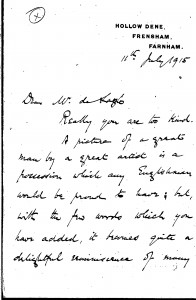 HOLLOW DENE,
FRENSHAM,
FARNHAM.
11th July 1915
Dear Mr. de
Really you are too kind.
A picture of a great
man by a great artist is a
possession which any Englishman
would be proud to have & but,
with the few words which you
have added, it becomes quite a
delightful reminiscence of many